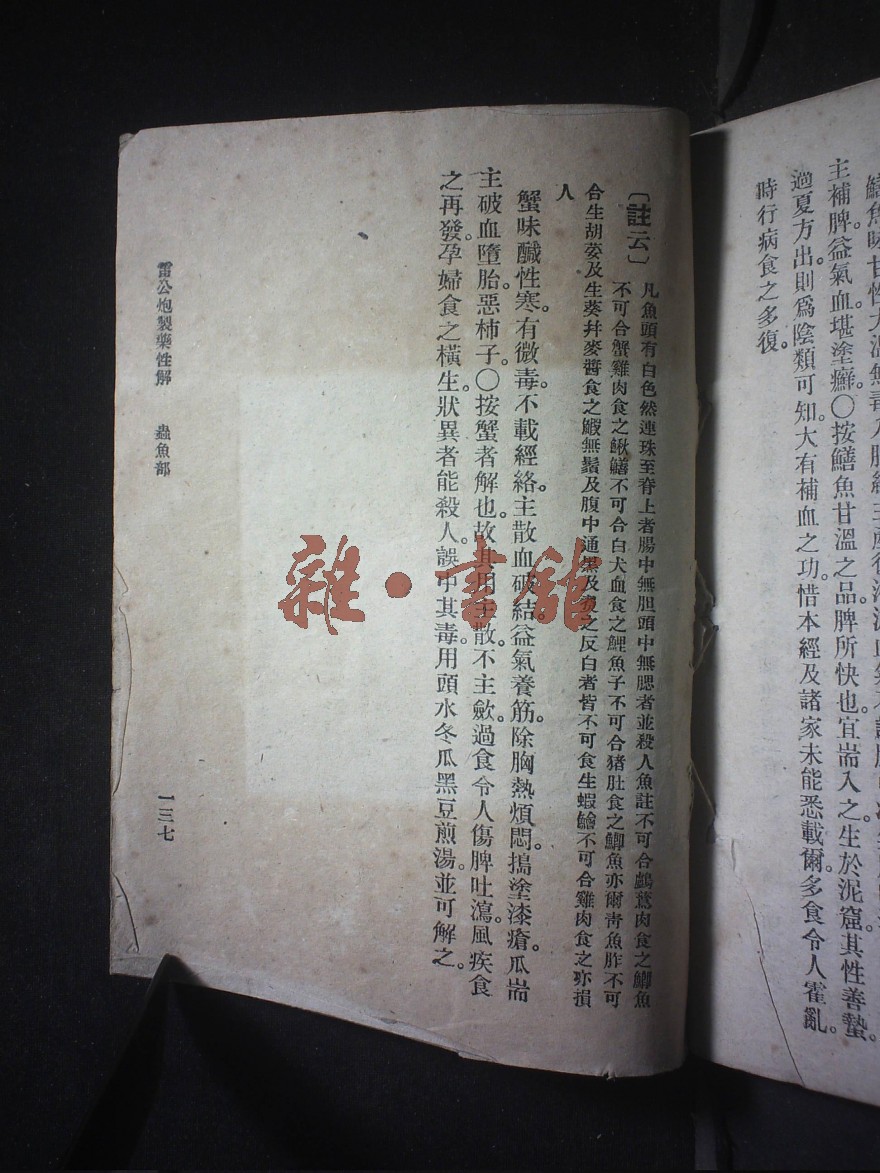 主補脾益氣血堪塗癬。〇按鱔魚甘溫之品。脾所快也。宜耑入之。生於泥窟。其性善蟄。
過夏方出。則爲陰類可知。大有補血之功。惜本經及諸家未能悉載爾。多食令人霍亂。
時行病食之多復。
〔註云〕凡魚頭有白色然連珠至脊上者腸中無胆頭中無腮者並殺人魚註不可合鸕鶿肉食之鯽魚
不可合蟹雞肉食之鰍鱔不可合白犬血食之鯉魚子不可合猪肚食之鯽魚亦爾靑魚胙不可
合生胡荽及生葵幷麥醬食之鰕無鬚及腹中通黑及煑之反白者皆不可食生蝦鱠不可合雞肉食之亦損
人
蟹味鹹性寒。有微毒。不載經絡。主散血破結。益氣養筋。除胸熱煩悶。搗塗漆瘡。瓜耑
主破血墮胎。惡柿子。〇按蟹者解也。故其用主散。不主歛。過食令人傷脾吐瀉。風疾食
之再發。孕婦食之橫生。狀異者能殺人。誤中其毒。用頭水冬瓜黑豆煎湯。並可解之。
雷公炮製藥性解　蟲魚部
一三七
雜·書館